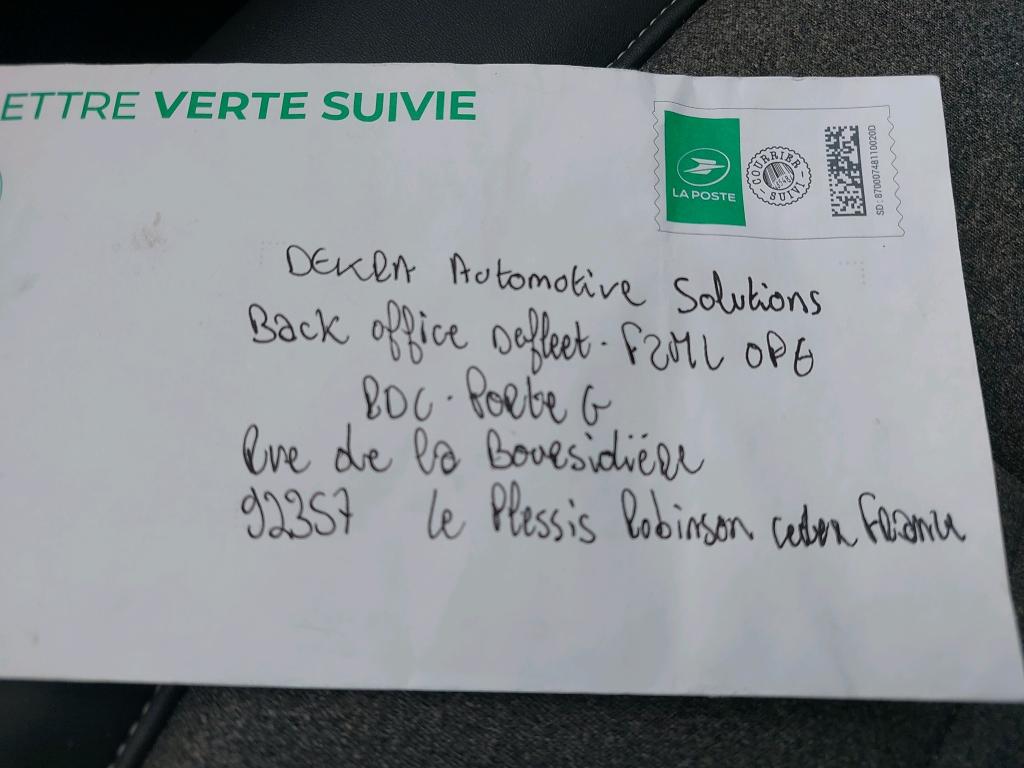 ETTRE VERTE SUIVIE
LA POSTE
COURRIER SUIVI
SD : 87000748110020D
DEKRA Automotive Solutions
Back office Defleet - F2ML OPE
RDC - Porte G
Rue de la Boursidière
92357 le Plessis Robinson cedex France